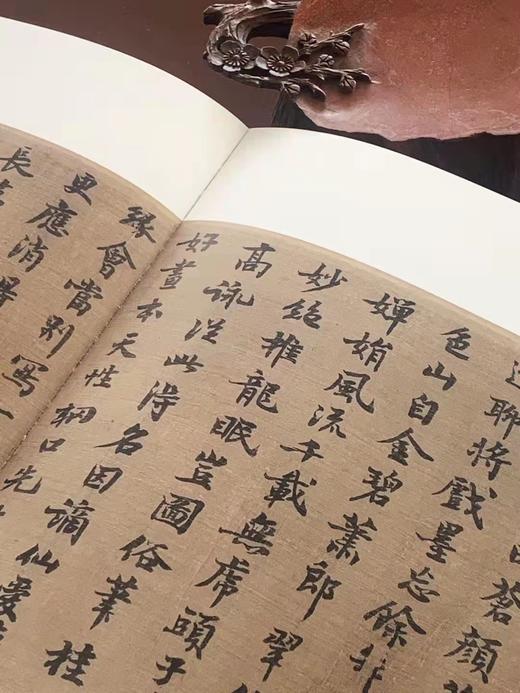 蒼顏
聯將戲墨忘餘非
色山自金碧蕭郎翠
嬋娟風流千載無虎頭子
妙絕推龍眠豈圖俗筆桂
高詠從此得名因謫仙愛
好畫本天性口先
緣會當別寫一
更應消
長